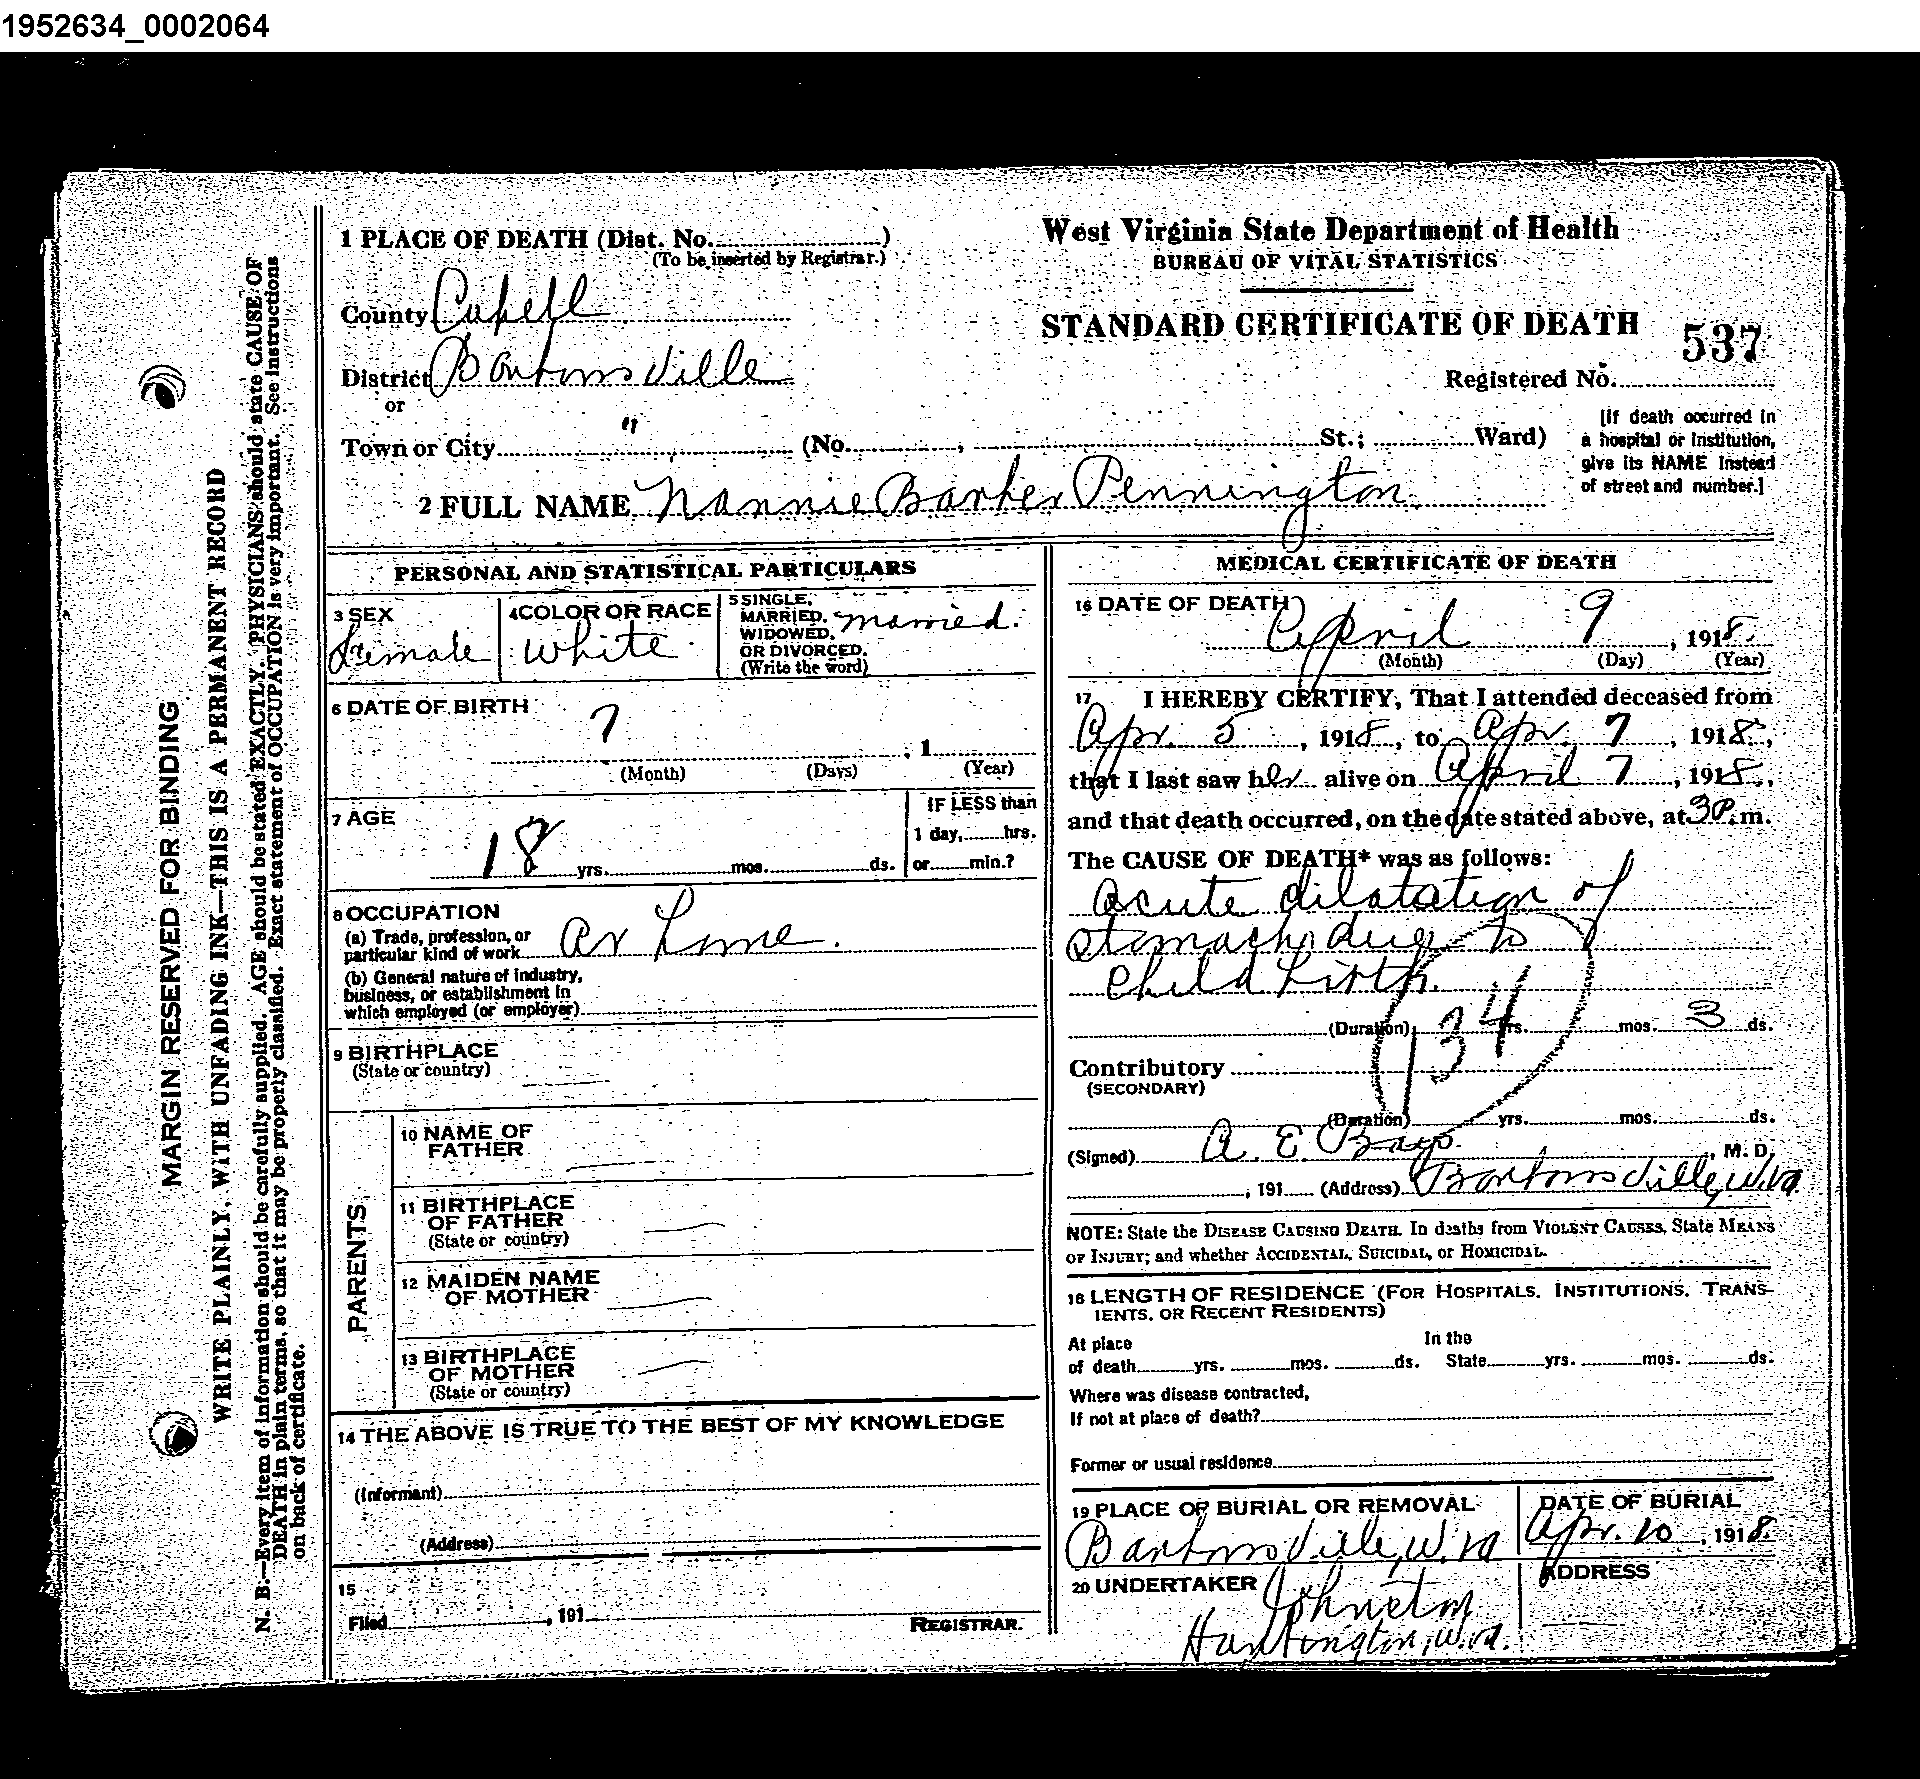 1952634_0002064
1 PLACE OF DEATH (Dist. No. )
(To be inserted by Registrar.)
County Cabell
District Barboursville
or
Town or City " (No. , St.; Ward)
2 FULL NAME Nannie Barker Pennington
West Virginia State Department of Health
BUREAU OF VITAL STATISTICS
STANDARD CERTIFICATE OF DEATH
537
Registered No.
[If death occurred in
a hospital or institution,
give its NAME instead
of street and number.]
MARGIN RESERVED FOR BINDING
WRITE PLAINLY, WITH UNFADING INK—THIS IS A PERMANENT RECORD
N. B.—Every item of information should be carefully supplied. AGE should be stated EXACTLY. PHYSICIANS should state CAUSE OF
DEATH in plain terms, so that it may be properly classified. Exact statement of OCCUPATION is very important. See instructions
on back of certificate.
PERSONAL AND STATISTICAL PARTICULARS
3 SEX
Female
4 COLOR OR RACE
White
5 SINGLE,
MARRIED,
WIDOWED,
OR DIVORCED.
(Write the word)
married.
6 DATE OF BIRTH
?
, 1
(Month) (Days) (Year)
7 AGE
18 yrs. mos. ds.
IF LESS than
1 day, hrs.
or min.?
8 OCCUPATION
(a) Trade, profession, or
particular kind of work At Home.
(b) General nature of industry,
business, or establishment in
which employed (or employer)
9 BIRTHPLACE
(State or country)
PARENTS
10 NAME OF
FATHER
11 BIRTHPLACE
OF FATHER
(State or country)
12 MAIDEN NAME
OF MOTHER
13 BIRTHPLACE
OF MOTHER
(State or country)
14 THE ABOVE IS TRUE TO THE BEST OF MY KNOWLEDGE
(Informant)
(Address)
15
Filed , 191
REGISTRAR.
MEDICAL CERTIFICATE OF DEATH
16 DATE OF DEATH
April 9 , 1918.
(Month) (Day) (Year)
17 I HEREBY CERTIFY, That I attended deceased from
Apr. 5 , 1918, to Apr. 7 , 1918,
that I last saw her alive on April 7 , 1918,
and that death occurred, on the date stated above, at 3 P. m.
The CAUSE OF DEATH* was as follows:
Acute dilatation of
stomach, due to
Child birth.
134
(Duration) yrs. mos. 3 ds.
Contributory
(SECONDARY)
(Duration) yrs. mos. ds.
(Signed) A. E. Bays. , M. D.
, 191 (Address) Barboursville, W.Va.
NOTE: State the DISEASE CAUSING DEATH. In deaths from VIOLENT CAUSES, State MEANS
OF INJURY; and whether ACCIDENTAL, SUICIDAL, or HOMICIDAL.
18 LENGTH OF RESIDENCE (FOR HOSPITALS, INSTITUTIONS, TRANS-
IENTS, OR RECENT RESIDENTS)
At place
of death yrs. mos. ds.
In the
State yrs. mos. ds.
Where was disease contracted,
If not at place of death?
Former or usual residence
19 PLACE OF BURIAL OR REMOVAL
Barboursville, W. Va
DATE OF BURIAL
Apr. 10 , 1918.
20 UNDERTAKER
Johnston
Huntington, W.Va.
ADDRESS